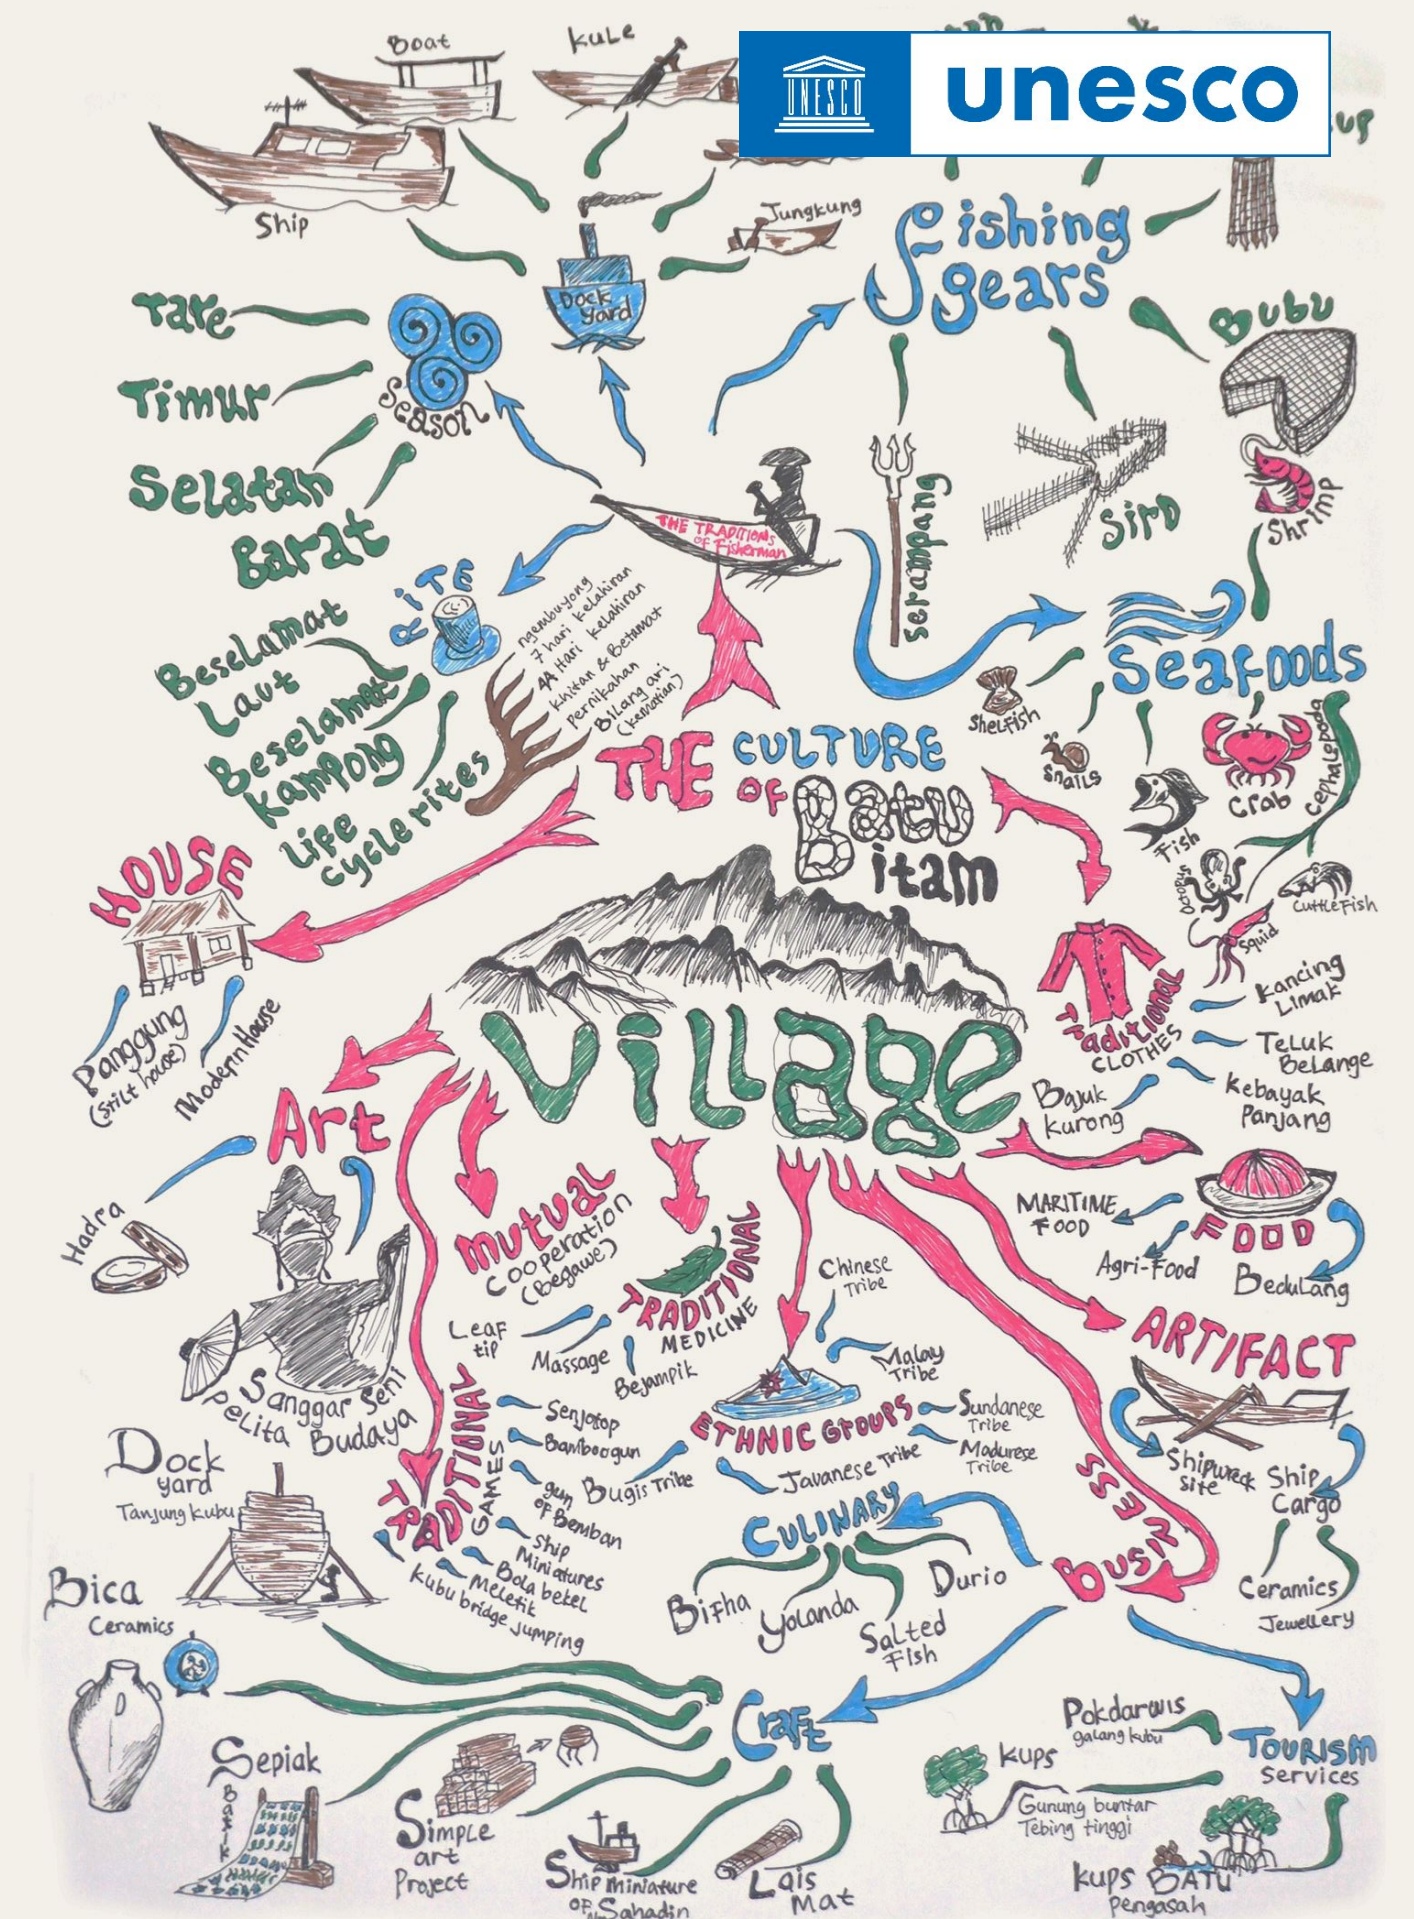 Boat
Kule
UNESCO
unesco
up
Ship
Jungkung
Dock
yard
fishing
gears
Tare
Timur
Selatan
Barat
Season
Bubu
Shrimp
Serampang
Sird
THE TRADITIONS
of Fisherman
RITE
Beselamat
Laut
Beselamat
Kampong
Life
cycle rites
ngembuyong
7 hari kelahiran
44 Hari kelahiran
Khitan & Betamat
pernikahan
Bilang ari
(kematian)
Seafoods
Shelfish
Snails
Fish
Crab
Cephalopoda
Octopus
Squid
CuttleFish
THE CULTURE
OF Batu
itam
Village
HOUSE
Panggung
(Stilt house)
Modern House
Traditional
CLOTHES
Kancing
Limak
Teluk
Belange
Kebayak
Panjang
Bajuk
Kurong
Art
Hadra
Sanggar Seni
Pelita Budaya
Mutual
Cooperation
(Begawe)
TRADITIONAL
MEDICINE
Leaf
tip
Massage
Bejampik
FOOD
MARITIME
FOOD
Agri-Food
Bedulang
ETHNIC GROUPS
Chinese
Tribe
Malay
Tribe
Sundanese
Tribe
Madurese
Tribe
Javanese Tribe
Bugis Tribe
ARTIFACT
Shipwreck
Site
Ship
Cargo
Ceramics
Jewellery
TRADITIONAL
GAMES
Senjotop
Bamboogun
gun
of Bemban
Ship
Miniatures
Bola bekel
Meletik
Kubu bridge jumping
BUSINESS
CULINARY
Bifha
Yolanda
Salted
Fish
Durio
Dock
yard
Tanjung Kubu
Bica
Ceramics
Craft
Sepiak
Batik
Simple
art
Project
Ship miniature
OF
Sahadin
Lais
Mat
Tourism
Services
Pokdarwis
galang kubu
Kups
Gunung buntar
Tebing tinggi
Kups BATU
Pengasah